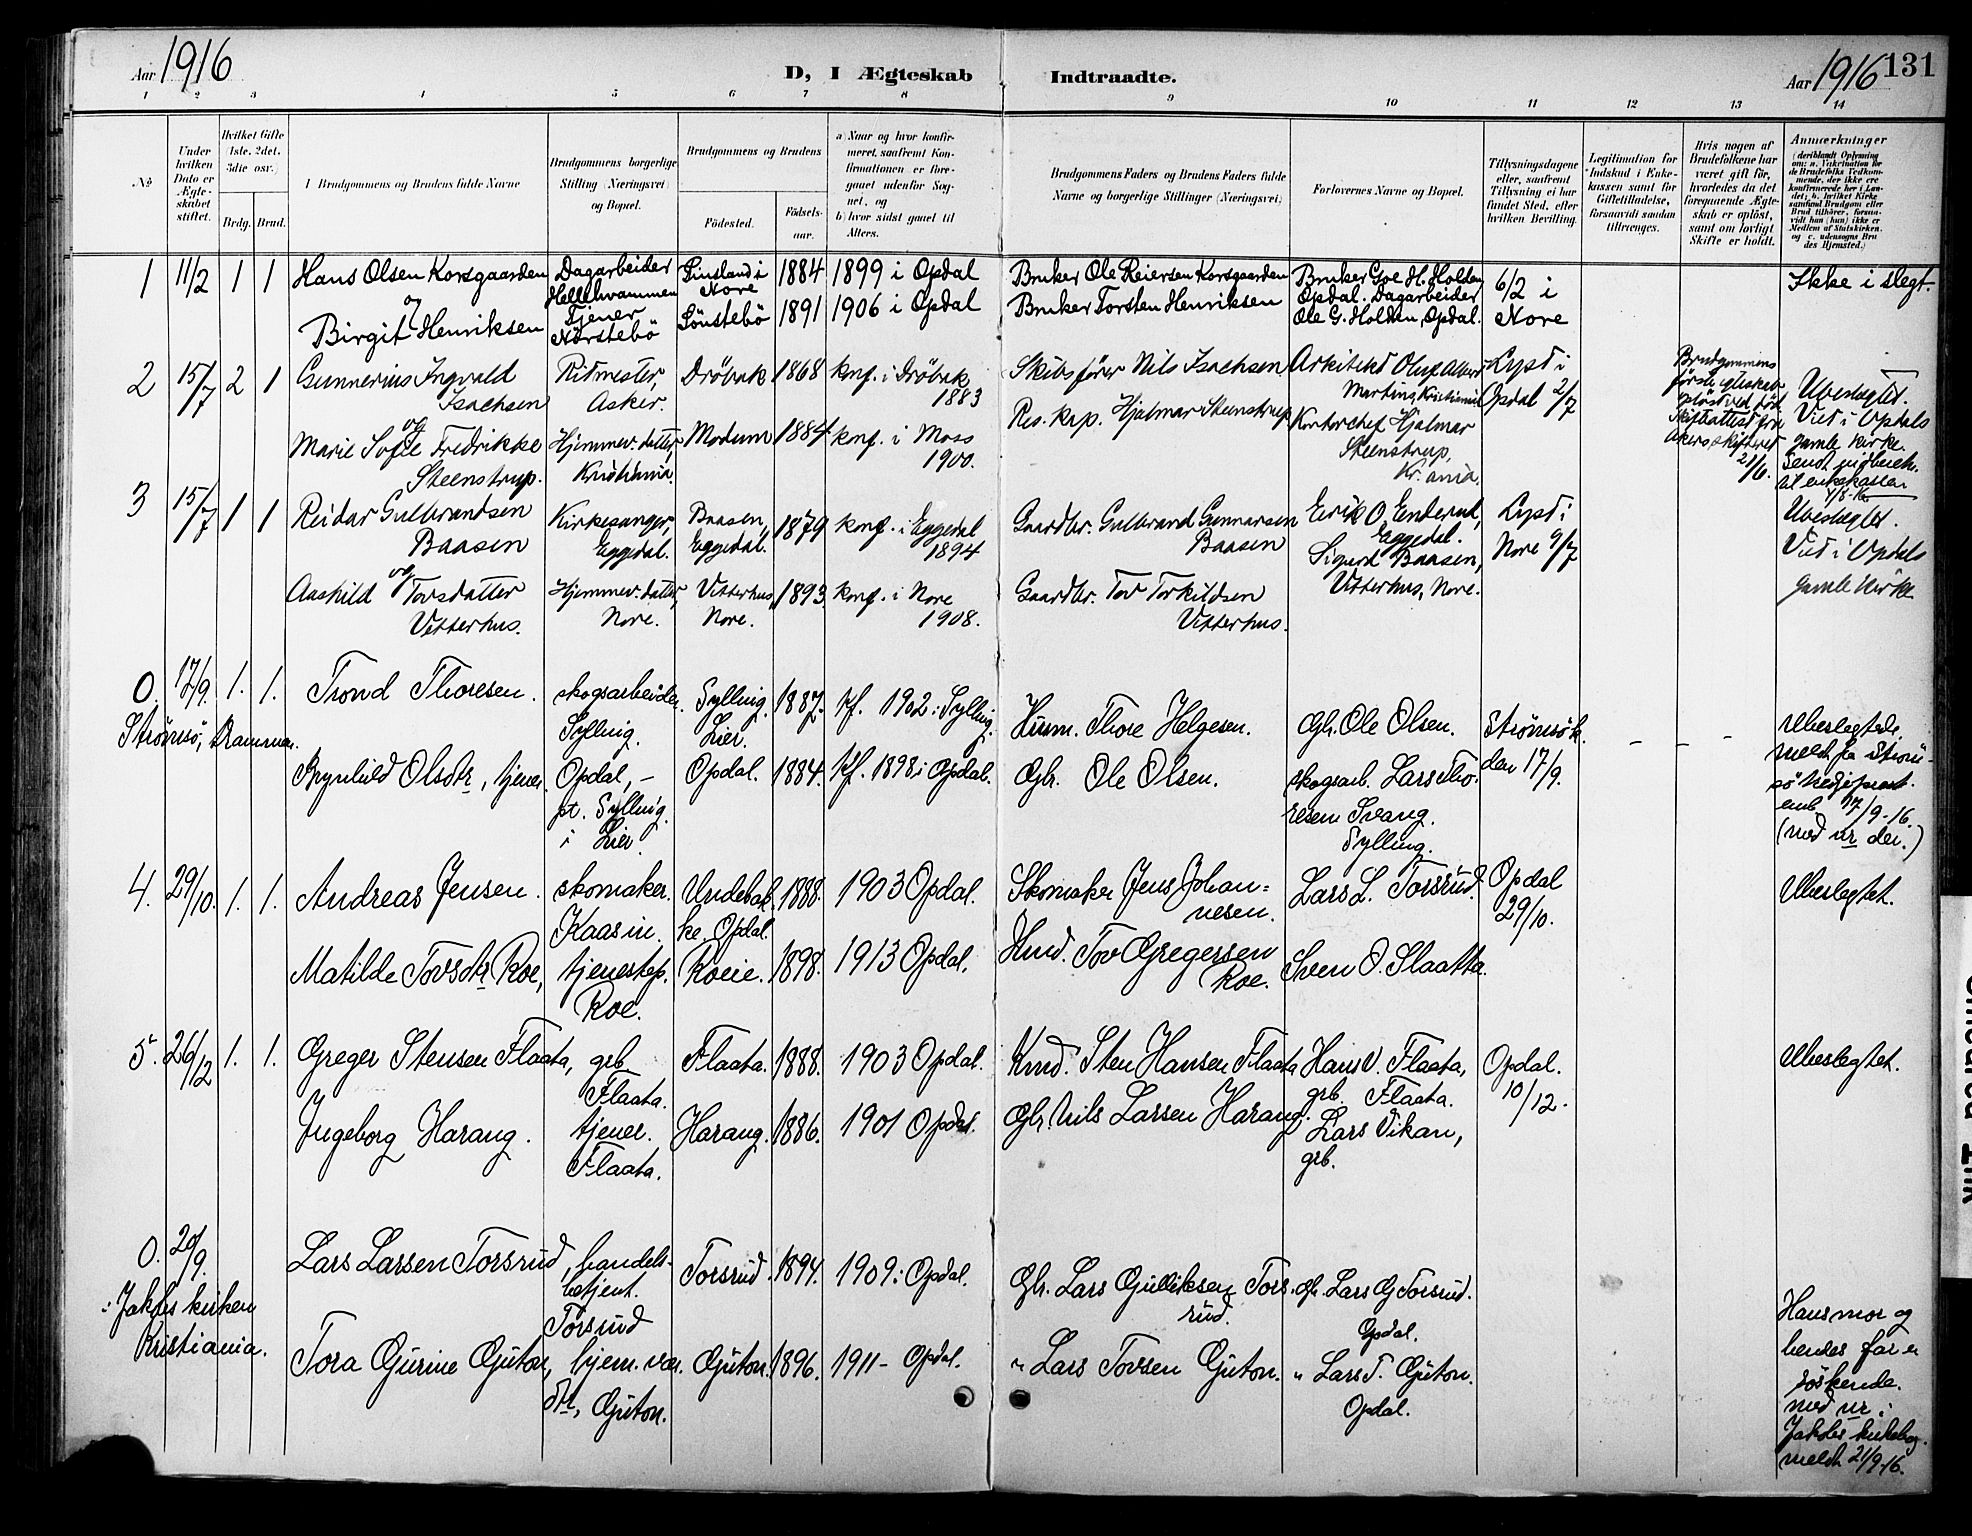 Aar 1916
D, I Ægteskab Indtraadte.
Aar 1916 131
1 2 3 4 5 6 7 8 9 10 11 12 13 14
No
Under hvilken Dato er Ægteskabet stiftet.
Hvilket Gifte (1ste, 2det, 3die osv.)
Brdg. Brud.
Brudgommens og Brudens fulde Navne
Brudgommens borgerlige Stilling (Næringsvei) og Bopæl.
Brudgommens og Brudens
Fødested.
Fødselsaar.
a) Naar og hvor konfirmeret, saafremt Konfirmationen er foregaaet udenfor Sognet, og
b) hvor sidst gaaet til Alters.
Brudgommens Faders og Brudens Faders fulde Navne og borgerlige Stillinger (Næringsvei)
Forlovernes Navne og Bopæl.
Tillysningsdagene eller, saafremt Tillysning ei har fundet Sted, efter hvilken Bevilling.
Legitimation for Indskud i Enkekassen samt for Giftetilladelse, forsaavidt saadan tiltrænges.
Hvis nogen af Brudefolkene har været gift før, hvorledes da det foregaaende Ægteskab er opløst, samt om lovligt Skifte er holdt.
Anmærkninger
(deriblandt Oplysning om: a. Vakcination for de Brudefolks Vedkommende, der ikke ere konfirmerede her i Landet; b. hvilket Kirkesamfund Brudgom eller Brud tilhører, forsaavidt han (hun) ikke er Medlem af Statskirken, og c. udensogns Brudes Hjemsted.)
1 11/2 1 1 Hans Olsen Korsgaarden
og
Birgit Henriksen
Dagarbeider
Hellehvammen
Tjener
Nørstebö
Nore
Sönstebö
1884
1891
1899 i Opdal
1906 i Opdal
Bruker Ole Reiersen Korsgaarden
Bruker Torsten Henriksen
Bruker Goe H. Holden
Opdal. Dagarbeider
Ole G. Holden, Opdal.
6/2 i
Nore
Ikke i slegt.
2 15/7 2 1 Gunnerius Ingvald
Isachsen
og
Marie Sofie Fredrikke
Steenstrup.
Ritmester,
Asker.
Hjemmev. datter,
Kristiania.
Dröbak
Modum
1868
1884
konf. i Dröbak
1883
konf. i Moss
1900.
Skibsfører Nils Isachsen
Res. kap. Hjalmar Steenstrup
Arkitekt Oluf
Martins, Kristiania
Kontorchef Hjalmar
Steenstrup,
Kr.ania.
Lyst i
Opdal 2/7
Brudgommens
første
opløst ved død.
Skifteattest fra
Akers skifteret
21/6.
Ubeslægtet.
Vied i Opdals
gamle kirke.
Sendt
til enkekassen
3 15/7 1 1 Reidar Gulbrandsen
Baasen
og
Aashild Tovsdatter
Vetterhus.
Kirkesanger,
Eggedal.
Hjemmev. datter,
Nore.
Baasen,
Eggedal.
Vetterhus,
Nore.
1879
1893
konf. i Eggedal
1894
konf. i Nore
1908.
Gaardbr. Gulbrand Gunnarsen
Baasen
Gaardbr. Tov Torkildsen
Vetterhus.
Eirik O. Enderud,
Eggedal.
Sigurd Baasen,
Vetterhus, Nore.
Lyst i
Nore 9/7
Ubeslægtet.
Vied i Opdals
gamle kirke
0. 17/9. 1. 1. Trond Thoresen.
Strømsø, Drammen.
Brynhild Olsdtr, tjener.
skogsarbeider.
Sylling.
Opdal, –
pt. Sylling.
i Lier.
Sylling.
Lier.
Opdal.
1887.
1884.
kf. 1902 i Sylling.
kf. 1898 i Opdal.
Husm. Thore Helgesen.
Gbr. Ole Olsen.
Gbr. Ole Olsen.
skogsarb. Lars Tho-
resen Svang.
Sylling.
Strømsø k.
den 17/9.
– – –
Ubeslegtede,
meldt fra Strøm-
sø sogneprest-
emb. 17/9-16.
(med nr der.)
4. 29/10. 1. 1. Andreas Jensen.
Matilde Tovsdtr Roe,
skomaker.
Kaasin.
tjenestep.
Roe.
Undebak-
ke, Opdal.
Roeie.
1888.
1898.
1903 Opdal.
1913 Opdal.
Skomaker Jens Johan=
nesen.
Hmd. Tov Gregersen
Roe.
Lars L. Torsrud.
Sven O. Slaatta.
Opdal
29/10.
Ubeslegtet.
5. 26/12 1. 1. Greger Stensen Flaata,
Ingeborg Harang.
grb
Flaata.
tjener.
Flaata.
Flaata.
Harang.
1888.
1886.
1903 Opdal.
1901 Opdal.
Kmd. Sten Hansen Flaata
Gbr. Nils Larsen Harang.
Hans V. Flaata,
grb. Flaata.
Lars Vikan,
grb.
Opdal.
10/12.
Ubeslegtet.
0. 20/9.
i Jakobs kirken
Kristiania.
Lars Larsen Torsrud,
Tora Gurine Guton,
handels-
betjent.
Torsrud
hjem. vær.
dtr, Guton.
Torsrud.
Guton.
1894.
1896.
1909 i Opdal.
1911 – Opdal.
Gbr. Lars Gulliksen Tors-
rud.
" Lars Tovsen Guton.
Gbr. Lars G Torsrud.
Opdal.
" Lars T. Guton.
Opdal.
Hans mor og
hendes far er
søskende.
med nr i
Jakobs kirkebog.
meldt 21/9-16.